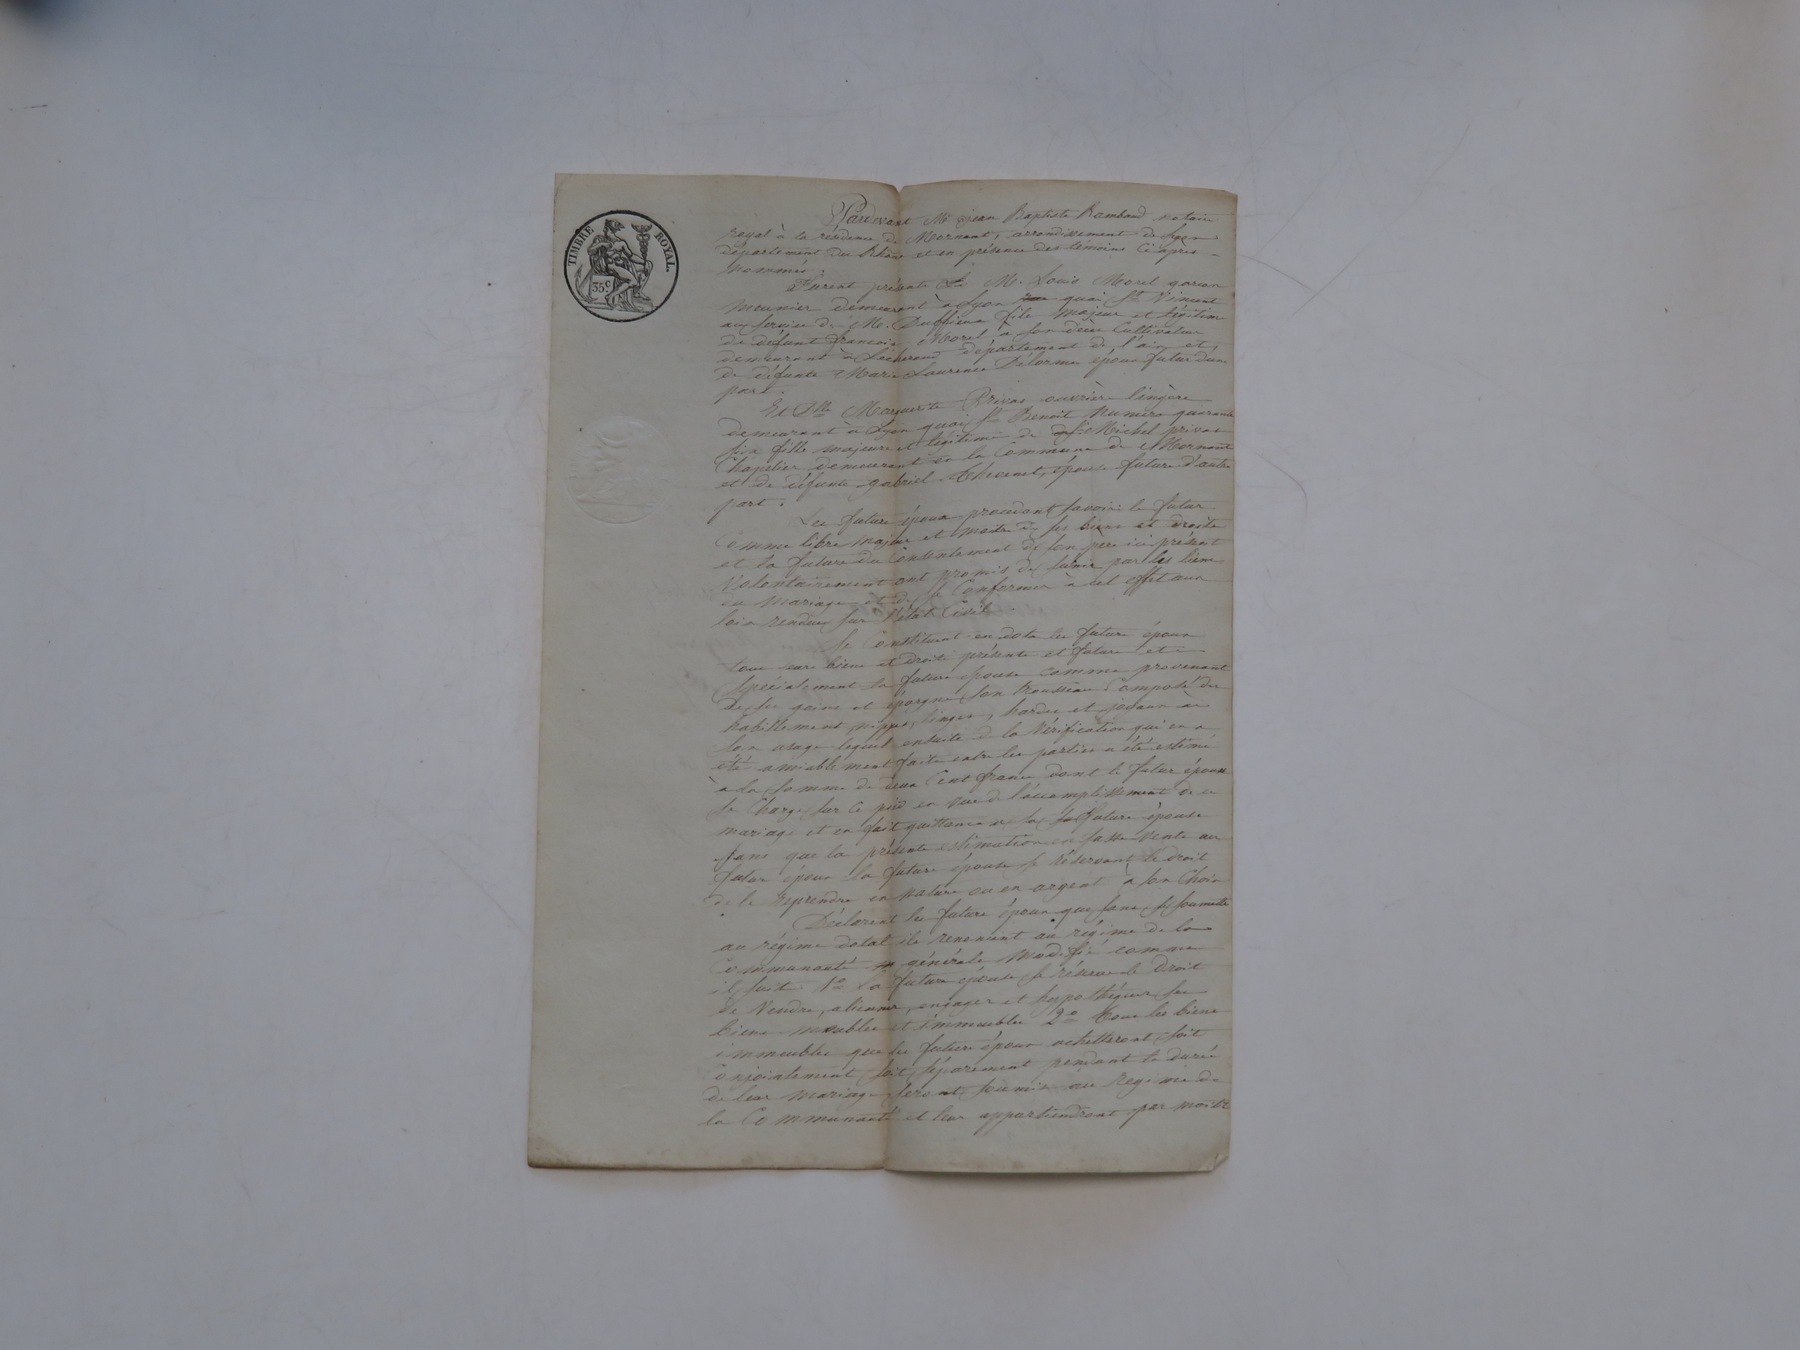 TIMBRE ROYAL.
35 c
Pardevant Me jean Baptiste Rambaud notaire
royal à la résidence de Mornant, arrondissement de Lyon
département du Rhône et en présence des témoins Ci après
nommés
Furent présents M. Louis Morel garcon
meunier demeurant à Lyon quai St Vincent
au service de M. fils majeur et légitime
de défunt francois Morel à son décès Cultivateur
demeurant à département de l'ain et
de défunte Marie Laurence Delorme époux futur d'une
part.
Et Dlle Marguerite Privas ouvrière lingère
demeurant à Lyon quai St Benoit Numéro quarante
six fille majeure et légitime de Michel privas
Chapelier demeurant en la Commune de Mornant
et de défunte gabriel Thevenet, épouse future d'autre
part.
Les future époux procedant savoir le futur
Comme libre majeur et maitre de ses biens et droits
et la future du Consentement de son père ici présent
Volontairement ont promis de s'unir par les liens
du mariage et de se Conformer à cet effet aux
lois rendues sur l'état Civil.
Se Constituent en dote les future époux
tous leurs biens et droits présents et future et
spécialement la future épouse comme provenant
de ses gains et épargnes son trousseau Composé des
habillements, nippes, linges, hardes et joyaux à
son usage lequel ensuite de la Vérification qui en a
été amiablement faite entre les parties a été estimé
à la Somme de deux Cent francs dont le futur époux
se Charge sur ce pied en vue de l'accomplissement de ce
mariage et en fait quittance à la future épouse
sans que la présente estimation en fasse Vente au
futur époux la future épouse se réservant le droit
de le reprendre en nature ou en argent à son Choix
Déclarent les future époux que sans se soumettre
au régime dotal ils renoncent au régime de la
Communauté générale modifié comme
il suit 1o La future épouse se réserve le Droit
de Vendre, aliéner, engager et hypothéquer ses
biens meubles et immeubles 2o Tous les biens
immeubles que les future époux achetteront soit
Conjointement soit séparement pendant la durée
de leur mariage seront soumis au régime de
la Communauté et leur appartiendront par moitié